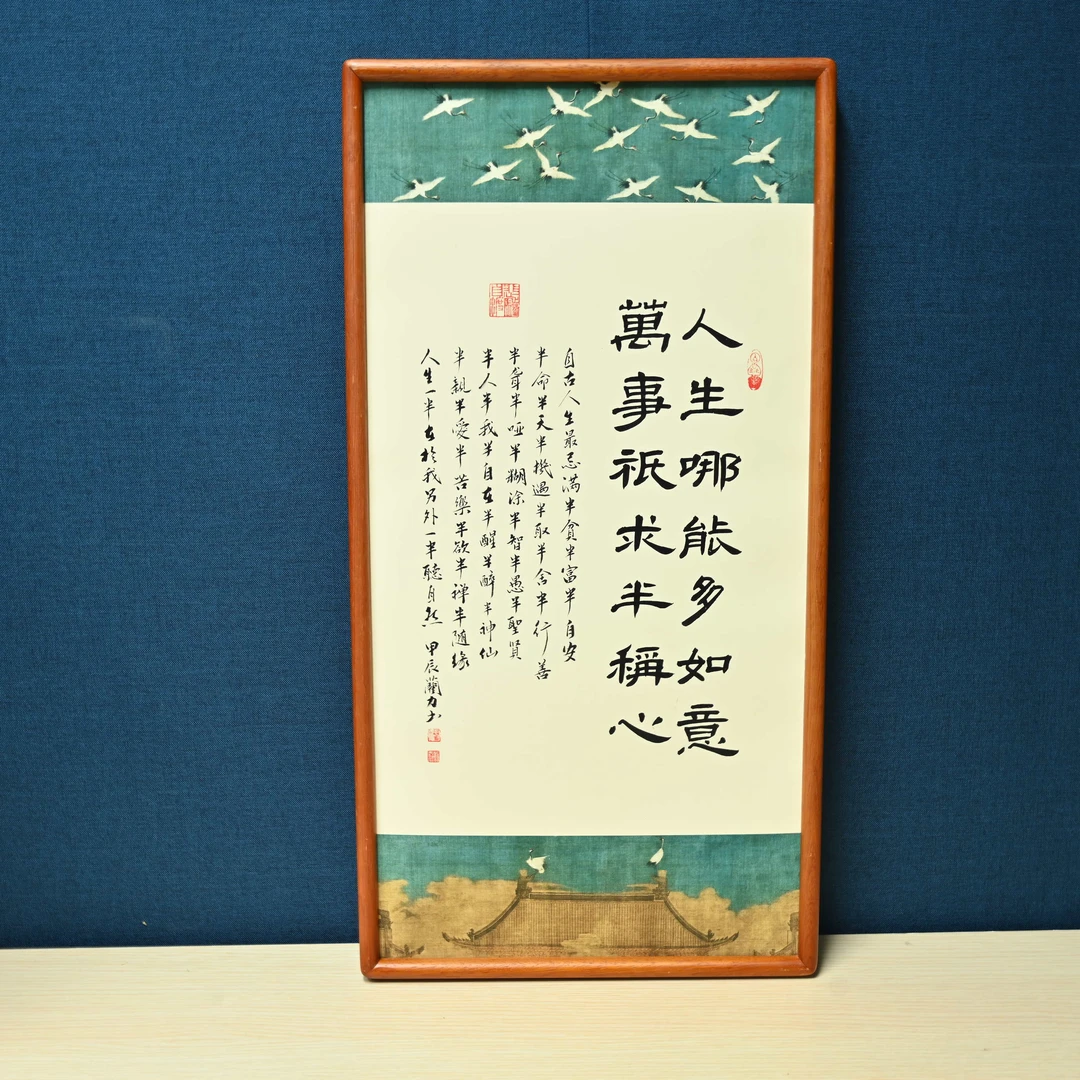 人生哪能多如意
萬事祇求半稱心
自古人生最忌滿半貪半富半自安
半命半天半機遇半取半舍半行善
半聾半啞半糊塗半智半愚半聖賢
半人半我半自在半醒半醉半神仙
半親半愛半苦樂半欲半禪半隨緣
人生一半在於我另外一半聽自然
甲辰蘭力書